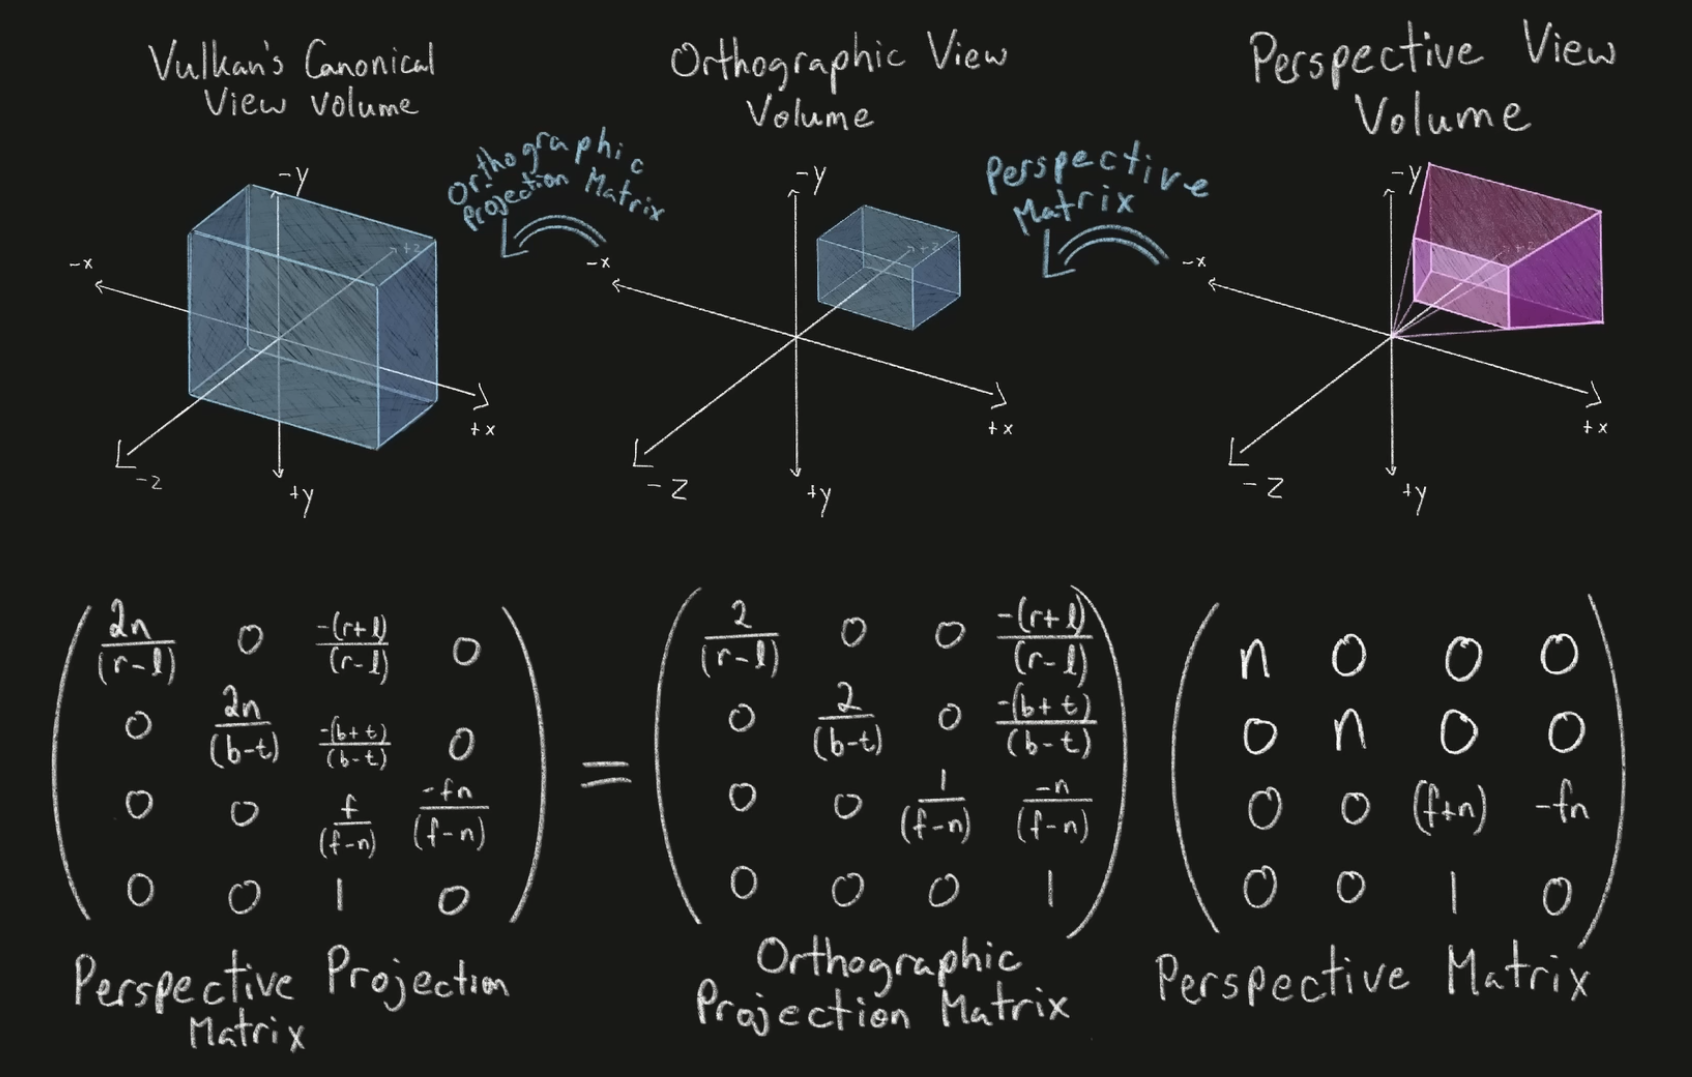 Vulkan's Canonical
View Volume
Orthographic View
Volume
Perspective View
Volume
Orthographic
Projection Matrix
Perspective
Matrix
-y
+z
-x
+x
-z
+y
-y
+z
-x
+x
-z
+y
-y
+z
-x
+x
-z
+y
2n/(r-l) 0 -(r+l)/(r-l) 0
0 2n/(b-t) -(b+t)/(b-t) 0
0 0 f/(f-n) -fn/(f-n)
0 0 1 0
=
2/(r-l) 0 0 -(r+l)/(r-l)
0 2/(b-t) 0 -(b+t)/(b-t)
0 0 1/(f-n) -n/(f-n)
0 0 0 1
n 0 0 0
0 n 0 0
0 0 (f+n) -fn
0 0 1 0
Perspective Projection
Matrix
Orthographic
Projection Matrix
Perspective Matrix